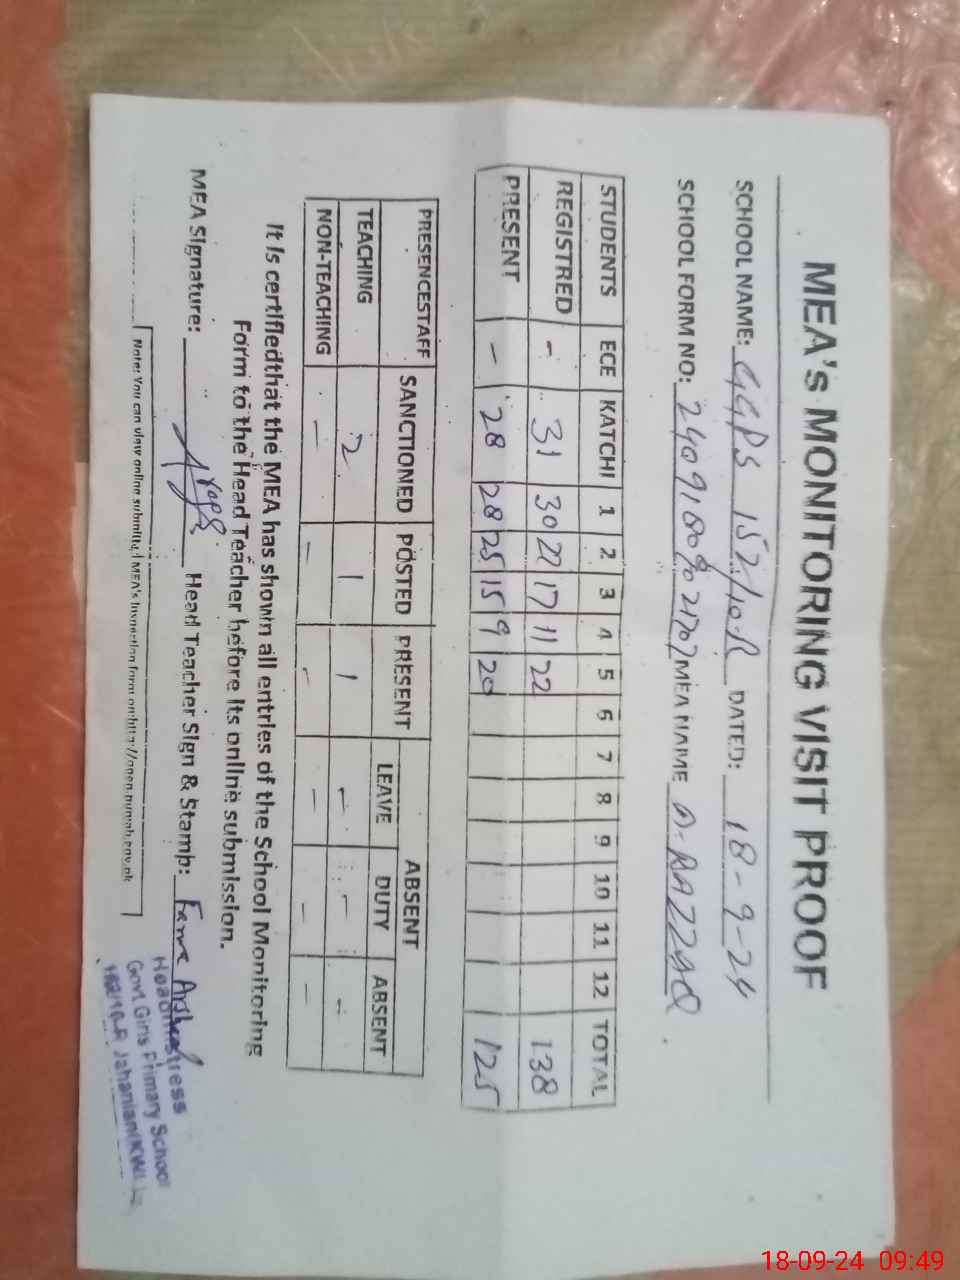 MEA's MONITORING VISIT PROOF
SCHOOL NAME: GGPS 152/10-R DATED: 18-9-24
SCHOOL FORM NO: MEA NAME A-RAZZAQ
STUDENTS ECE KATCHI 1 2 3 4 5 6 7 8 9 10 11 12 TOTAL
REGISTRED - 31 30 27 17 11 22 138
PRESENT - 28 28 25 15 9 20 125
PRESENCESTAFF SANCTIONED POSTED PRESENT ABSENT
LEAVE DUTY ABSENT
TEACHING 2 1 1 - - -
NON-TEACHING - - - - - -
It is certifiedthat the MEA has shown all entries of the School Monitoring
Form to the Head Teacher before its online submission.
MEA Signature: Head Teacher Sign & Stamp:
Headmistress
Govt. Girls Primary School
152/10-R Jahanian(KWL)
Note: You can view online submitted MEA's Inspection form on:http://open.pumoh.gov.pk
18-09-24 09:49